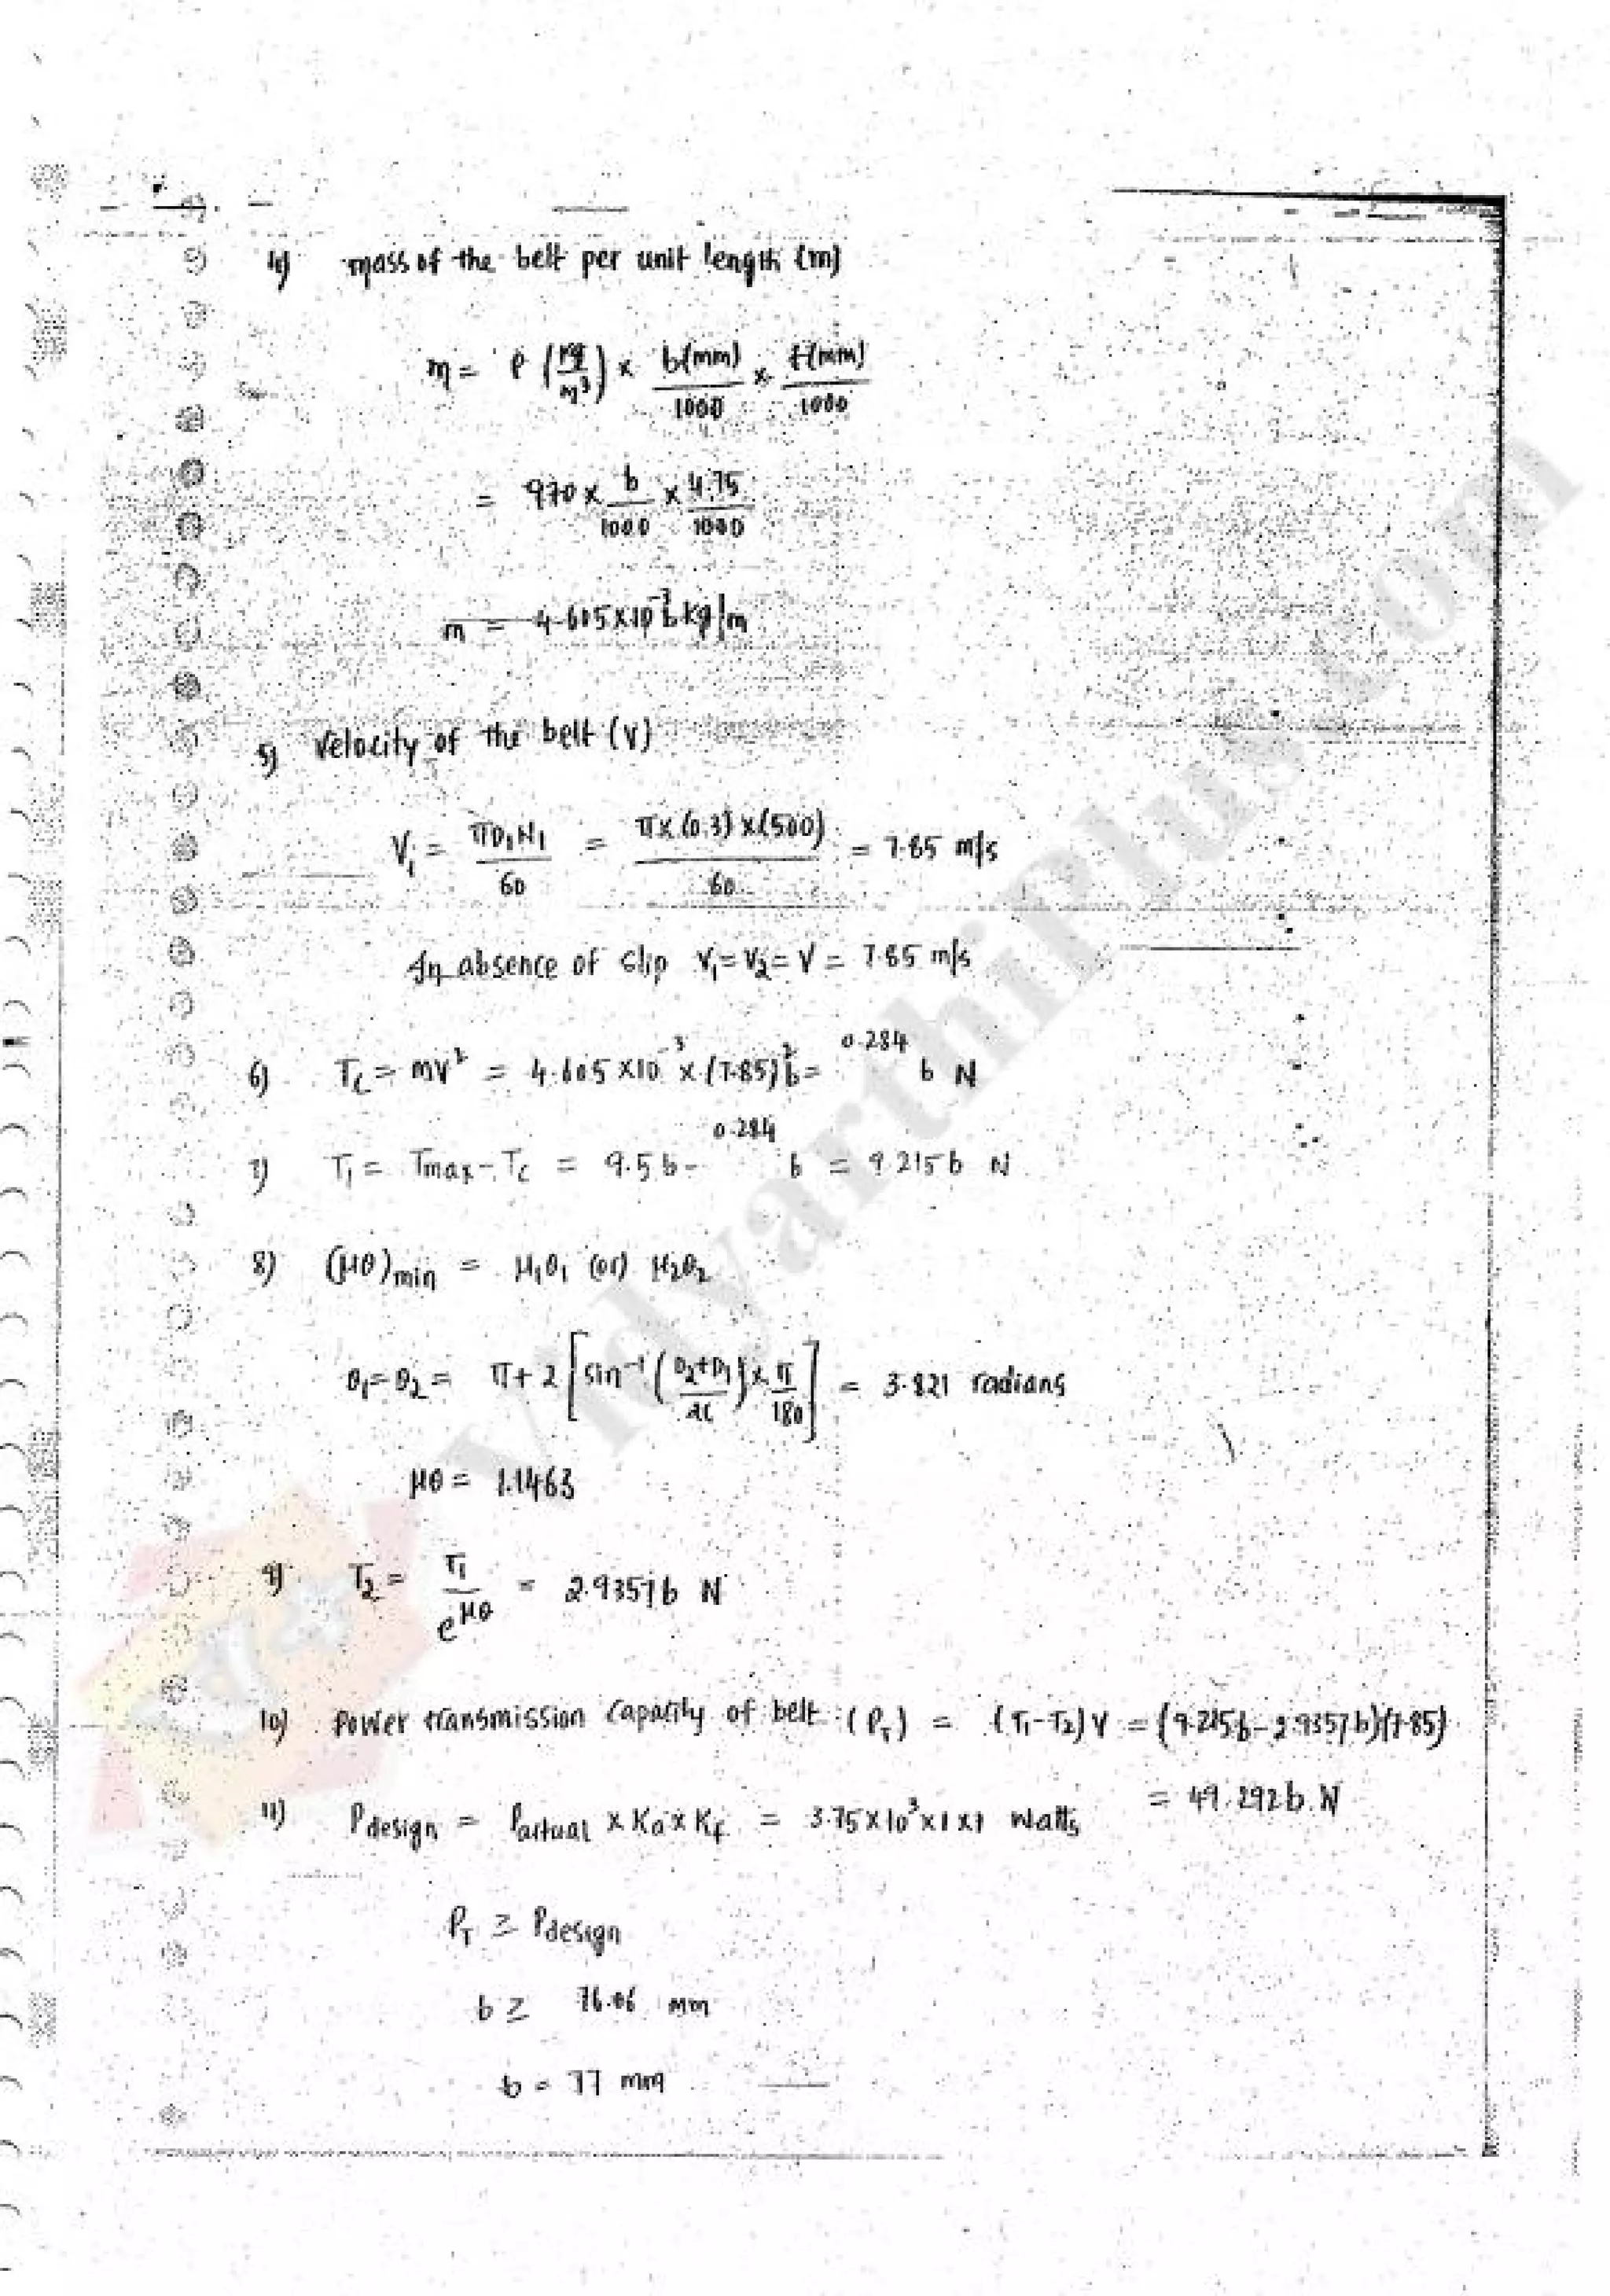 4) mass of the belt per unit length (m)
m = ρ (kg/m³) × b(mm)/1000 × t(mm)/1000
= 970 × b/1000 × 4.75/1000
m = 4.605×10⁻³ b kg/m
5) Velocity of the belt (V)
V₁ = πD₁N₁/60 = π×(0.3)×(500)/60 = 7.85 m/s
In absence of slip V₁ = V₂ = V = 7.85 m/s
6) Tc = mV² = 4.605×10⁻³ × (7.85)² b = 0.284 b N
7) T₁ = Tmax - Tc = 9.5 b - 0.284 b = 9.215 b N
8) (μθ)min = μ₁θ₁ (or) μ₂θ₂
θ₁ = θ₂ = π + 2 [sin⁻¹ (D₂+D₁/2C) × π/180] = 3.821 radians
μθ = 1.1463
9) T₂ = T₁/e^μθ = 2.9357 b N
10) Power transmission capacity of belt (PT) = (T₁-T₂) V = (9.215b - 2.9357 b)(7.85)
= 49.292 b N
11) Pdesign = Pactual × Ka × Kf = 3.75×10³×1×1 Watts
PT ≥ Pdesign
b ≥ 76.06 mm
b = 77 mm
VidyarthiPlus.com